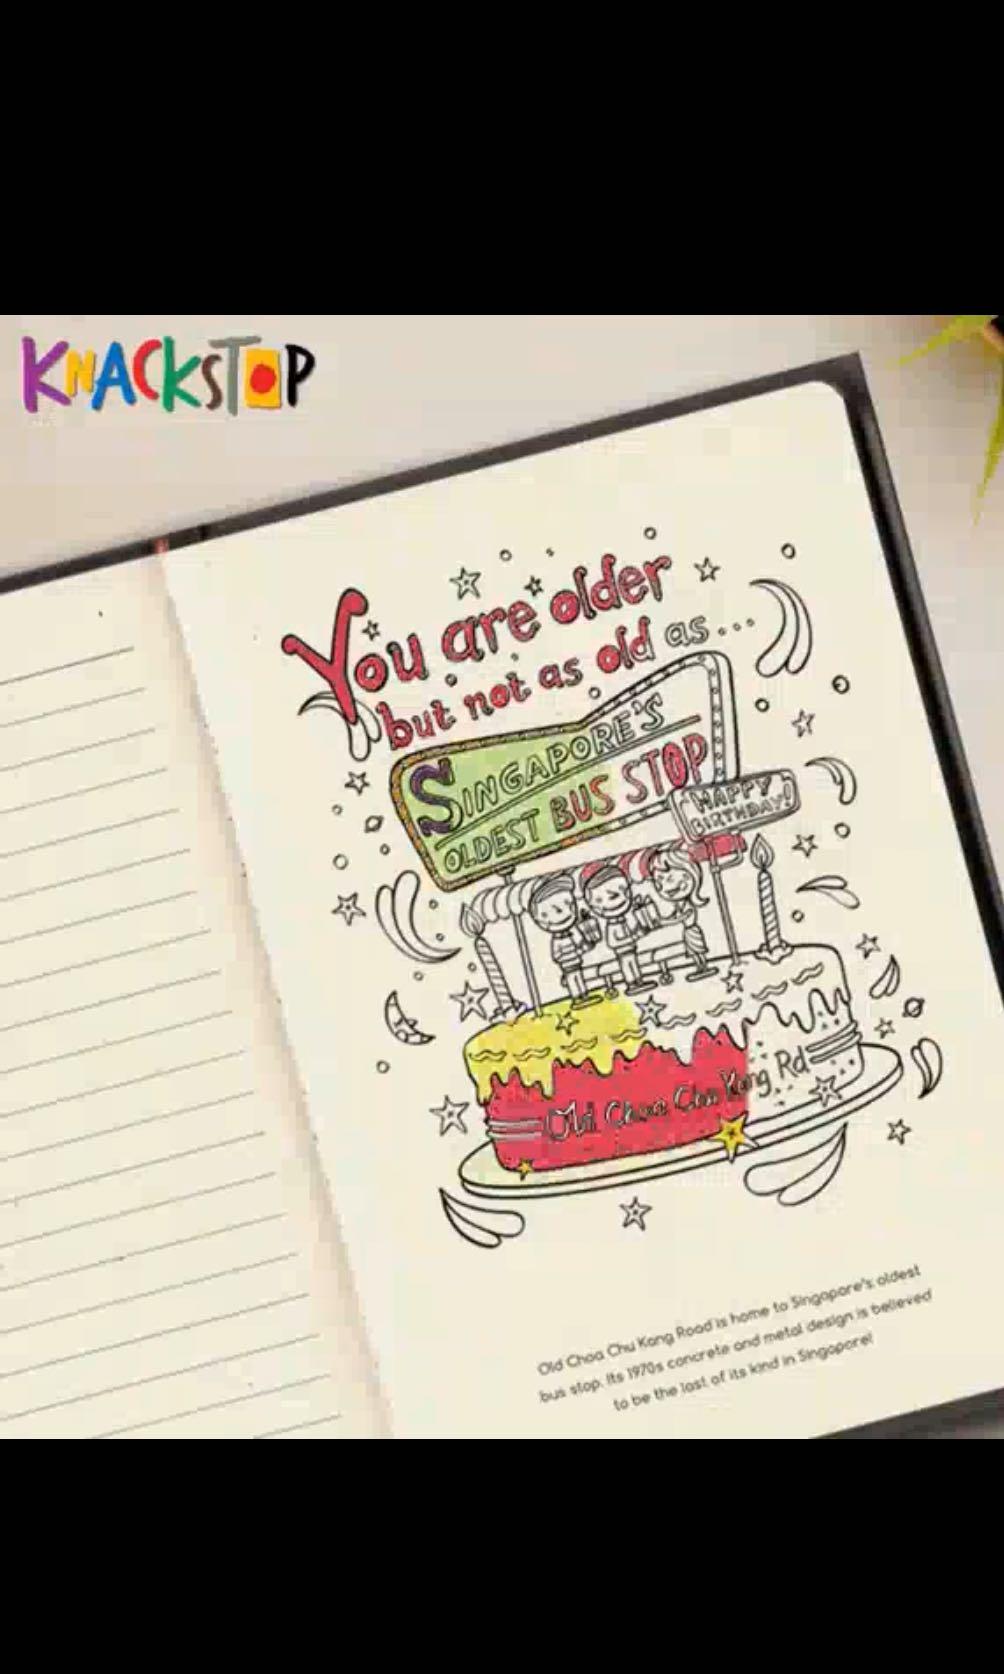 KNACKSTOP
You are older
but not as old as...
SINGAPORE'S
OLDEST BUS STOP
HAPPY
BIRTHDAY!
Old Choa Chu Kang Rd
Old Choa Chu Kang Road is home to Singapore's oldest
bus stop. Its 1970s concrete and metal design is believed
to be the last of its kind in Singapore!